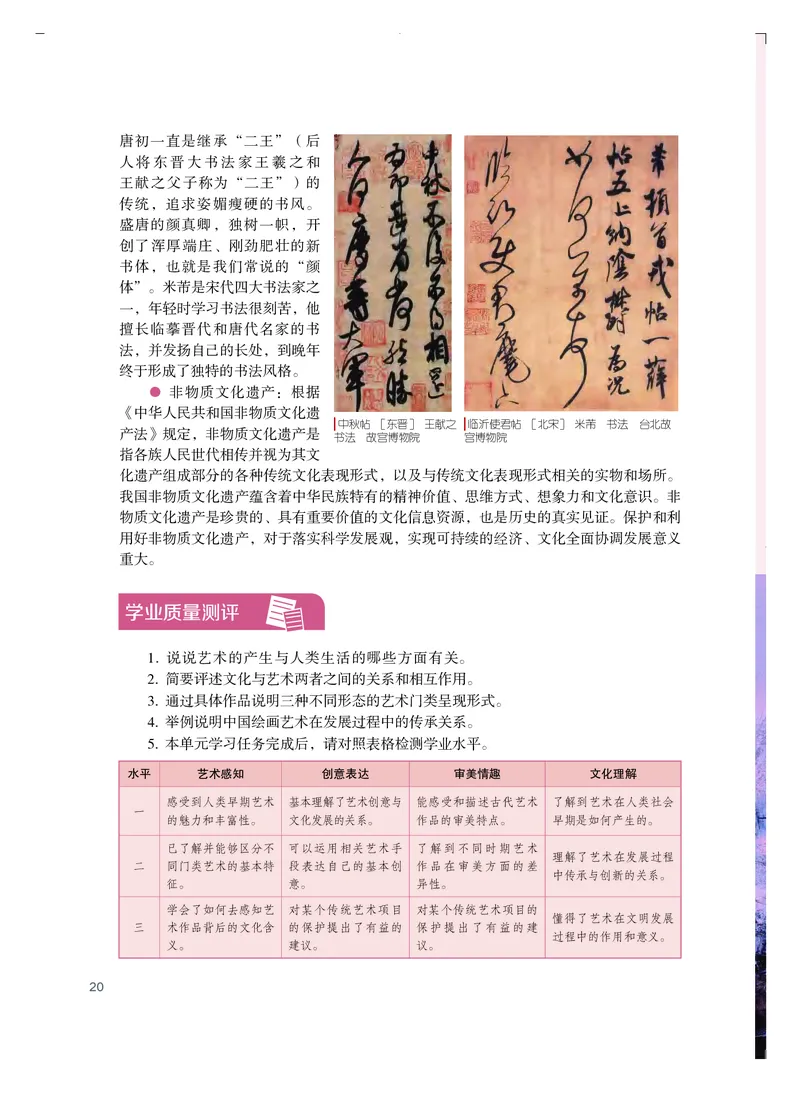 唐初一直是继承“二王”（后
人将东晋大书法家王羲之和
王献之父子称为“二王”）的
传统，追求姿媚瘦硬的书风。
盛唐的颜真卿，独树一帜，开
创了浑厚端庄、刚劲肥壮的新
书体，也就是我们常说的“颜
体”。米芾是宋代四大书法家之
一，年轻时学习书法很刻苦，他
擅长临摹晋代和唐代名家的书
法，并发扬自己的长处，到晚年
终于形成了独特的书法风格。
● 非物质文化遗产：根据
《中华人民共和国非物质文化遗
产法》规定，非物质文化遗产是
指各族人民世代相传并视为其文
化遗产组成部分的各种传统文化表现形式，以及与传统文化表现形式相关的实物和场所。
我国非物质文化遗产蕴含着中华民族特有的精神价值、思维方式、想象力和文化意识。非
物质文化遗产是珍贵的、具有重要价值的文化信息资源，也是历史的真实见证。保护和利
用好非物质文化遗产，对于落实科学发展观，实现可持续的经济、文化全面协调发展意义
重大。
中秋不复不得相还
为即甚省如何然胜
人何庆等大军
芾顿首戎帖一薛
帖五上纳阴郁为况
如何芾顿首
临沂使君麾下
中秋帖 ［东晋］ 王献之
书法 故宫博物院
临沂使君帖 ［北宋］ 米芾 书法 台北故
宫博物院
学业质量测评
1. 说说艺术的产生与人类生活的哪些方面有关。
2. 简要评述文化与艺术两者之间的关系和相互作用。
3. 通过具体作品说明三种不同形态的艺术门类呈现形式。
4. 举例说明中国绘画艺术在发展过程中的传承关系。
5. 本单元学习任务完成后，请对照表格检测学业水平。
水平 艺术感知 创意表达 审美情趣 文化理解
一
感受到人类早期艺术
的魅力和丰富性。
基本理解了艺术创意与
文化发展的关系。
能感受和描述古代艺术
作品的审美特点。
了解到艺术在人类社会
早期是如何产生的。
二
已了解并能够区分不
同门类艺术的基本特
征。
可以运用相关艺术手
段表达自己的基本创
意。
了解到不同时期艺术
作品在审美方面的差
异性。
理解了艺术在发展过程
中传承与创新的关系。
三
学会了如何去感知艺
术作品背后的文化含
义。
对某个传统艺术项目
的保护提出了有益的
建议。
对某个传统艺术项目的
保护提出了有益的建
议。
懂得了艺术在文明发展
过程中的作用和意义。
20